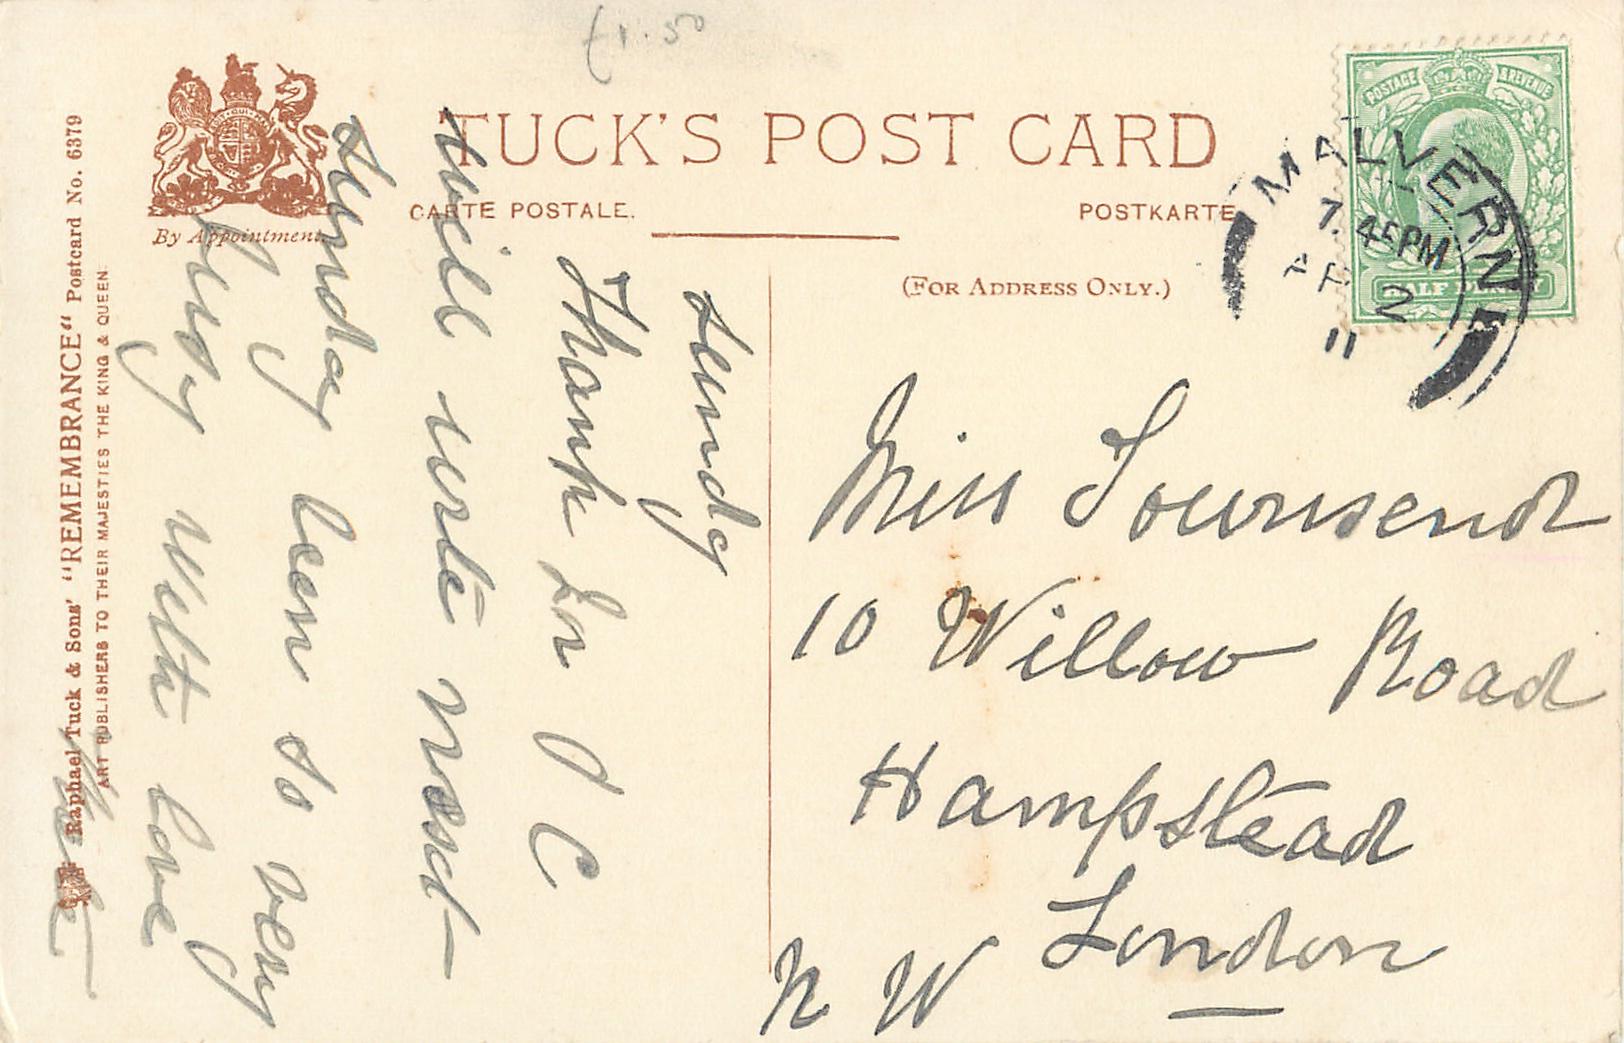 £1.50
TUCK'S POST CARD
CARTE POSTALE.
POSTKARTE
By Appointment.
(FOR ADDRESS ONLY.)
POSTAGE & REVENUE
HALF PENNY
MALVERN
7.45PM
AP 2
11
Raphael Tuck & Sons' "REMEMBRANCE" Postcard No. 6379
ART PUBLISHERS TO THEIR MAJESTIES THE KING & QUEEN.
Sunday
Thank for P C
will write next
Sunday been so very
busy with love
Miss Townsend
10 Willow Road
Hampstead
London
N W